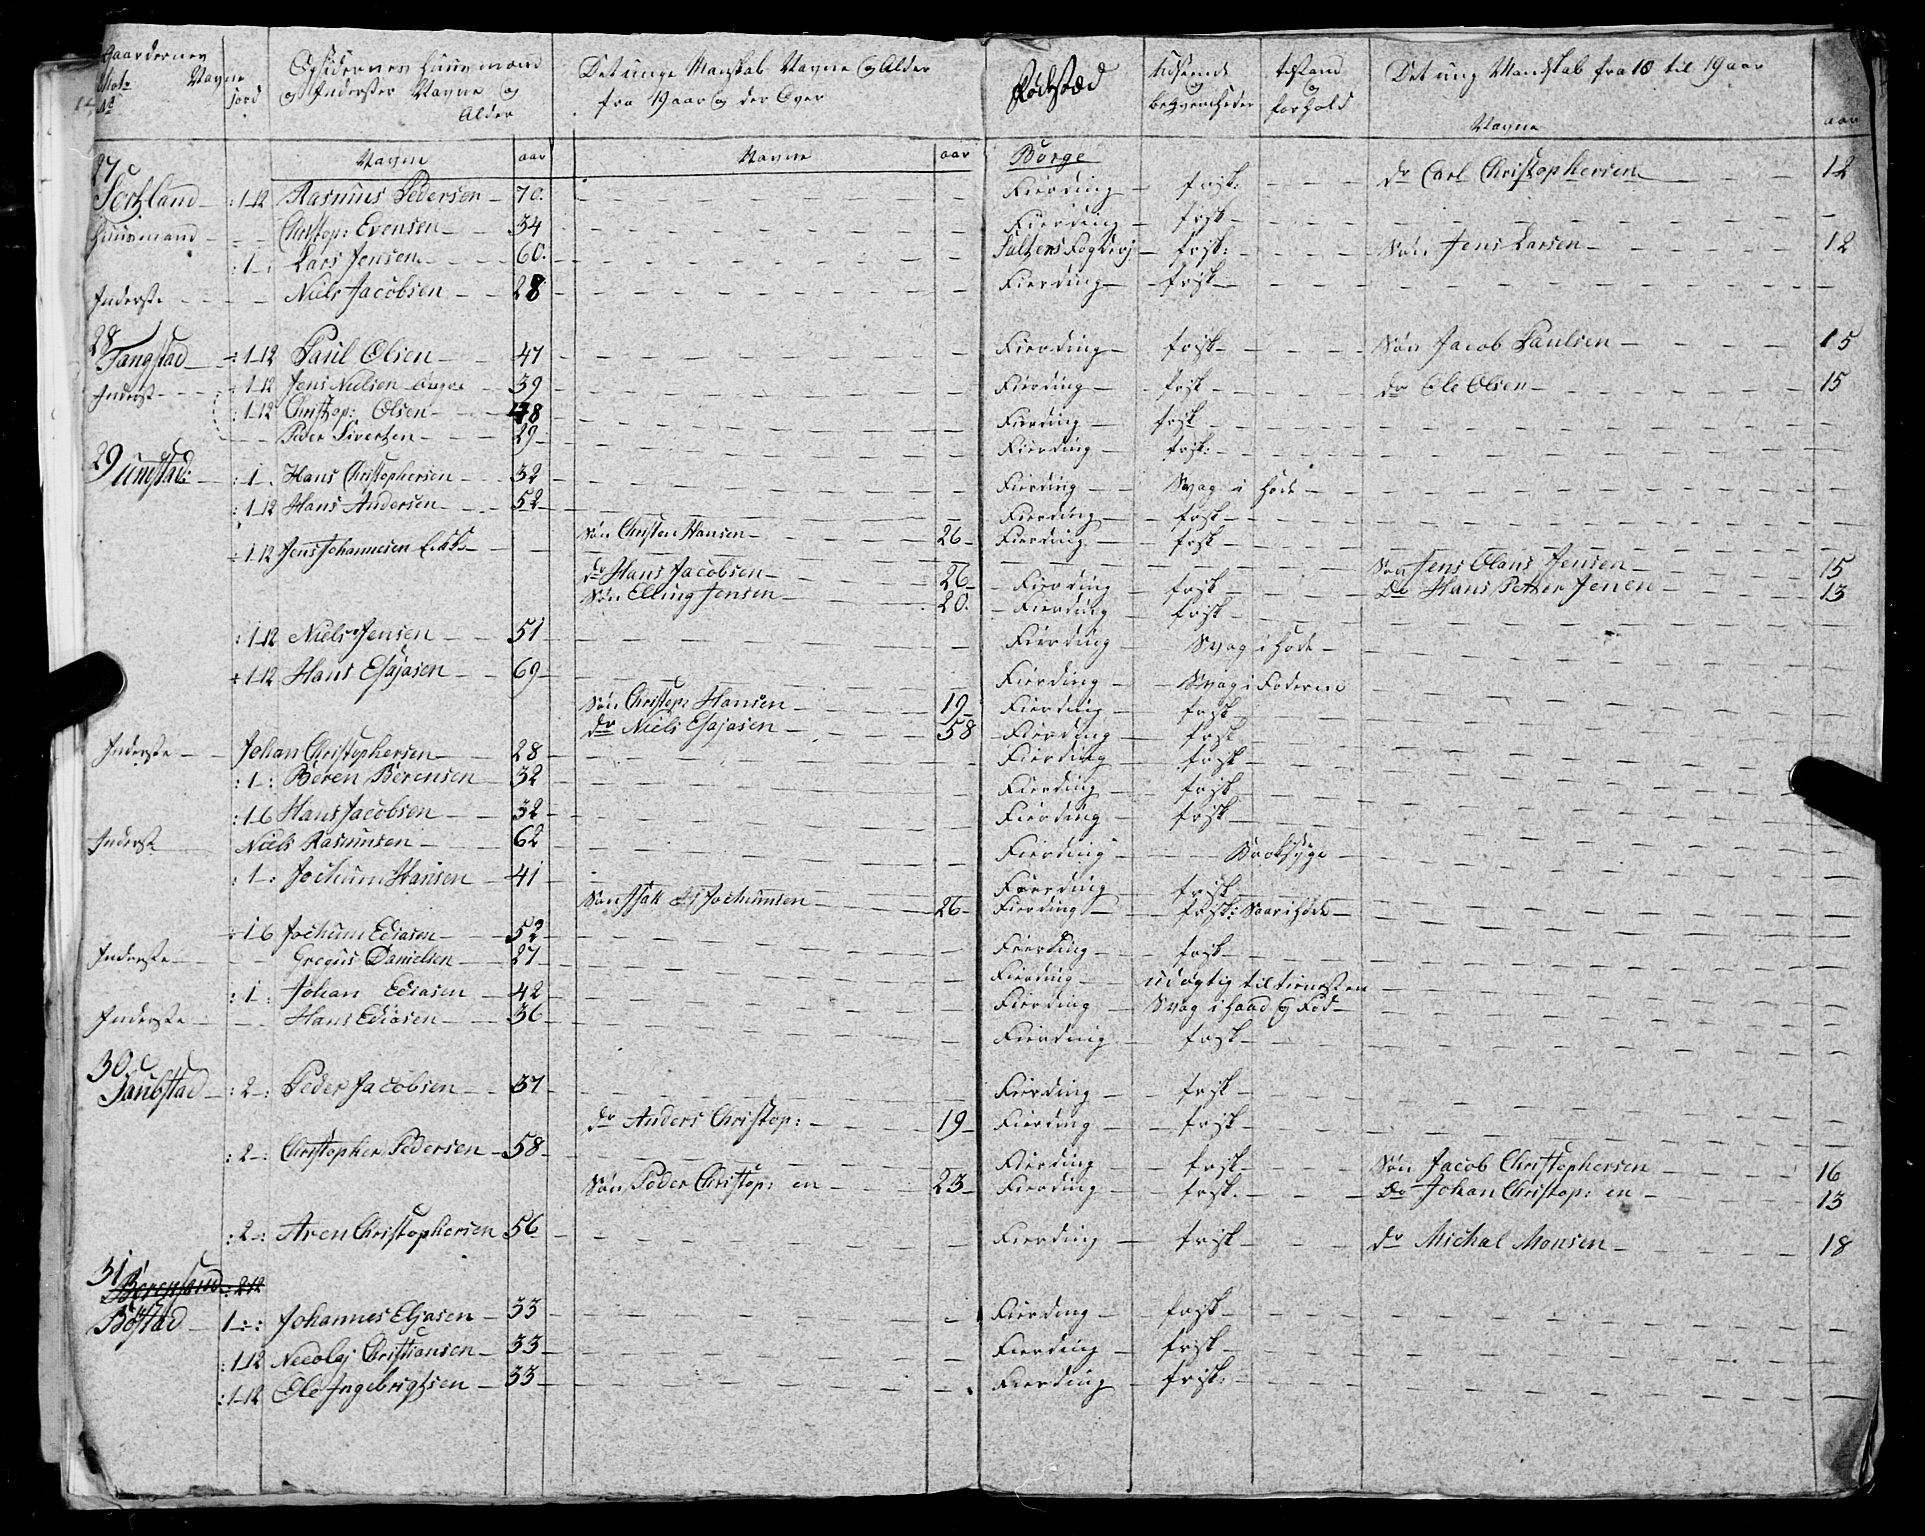 Gaardernes Navne
jord
Opsidernes Huusmænd og Inderster Navne og Alder
Det unge Manskab Navne og Alder fra 19 aar og der Over
Fødstæd
Udseende og beqvemheder
tilstand og forhold
Det ung Mandskab fra 10 til 19 aar
Navne aar Navne aar Navne aar
Borge
do Carl Christophersen 12
27
:1-12 Rasmus Pedersen 70. Fierding frisk:
Huusmand Christop: Evensen 34 Fierding frisk
:1-: Lars Jensen 60. Saltens Fogderj frisk: Søn Jens Larsen 12
Inderste Niels Jacobsen 28 Fierding frisk
28
Tangstad :1-12 Paul Olsen 47 Fierding frisk Søn Jacob Paulsen 15
Inderst :1-12 Jens Nielsen 39 Fierding frisk do Ole Olsen 15
:1-12 Christop: Olsen 48 Fierding frisk
Peder Sivertsen 29 Fierding frisk:
29 Unstad: :1- Hans Christophersen 32 Fierding Svag i
:1-12 Hans Andersen 52 Fierding frisk
Søn Christen Hansen 26 Fierding frisk
:1-12 Jens Johannesen Søn Jens Olaus Jensen 15
do Hans Jacobsen 26 Fierding frisk do Hans Petter Jensen 13
Søn Elling Jensen 20. Fierding frisk
:1-12 Niels Jensen 51 Fierding Svag i
:1-12 Hans Esajasen 69 Fierding Svag i Føderne
Søn Christop: Hansen 19 Fierding frisk
do Niels Esajasen 58 Fierding frisk
Inderste Johan Christophersen 28 Fierding frisk
:1-: Beren Berensen 32 Fierding frisk
:1-6 Hans Jacobsen 32 Fierding frisk
Inderst Niels Rasmusen 62 Fierding
:1-: Jochum Hansen 41 Fierding frisk
Søn Isak Jochumsen 26 Fierding frisk:
:1-6 Jochum Ediasen 52 Fierding frisk
Inderste Gregus Danielsen 27 Fierding udøgtig til tienesten
:1-: Johan Ediasen 42 Fierding Svag i Haand og Fod
Inderste Hans Ediasen 36 Fierding frisk
30
Taubstad :2-: Peder Jacobsen 37 Fierding frisk
do Anders Christop: 19 Fierding frisk
:2-: Christopher Pedersen 58 Fierding frisk Søn Jacob Christophersen 16
Søn Peder Christop: en 23 Fierding frisk. do Johan Christop: en 13
:2-: Aren Christophersen 56 Fierding frisk do Michal Monsen 18
31
Bøstad 1-: Johannes Eliasen 33 Fierding frisk
:1-12 Necolaj Christiansen 33 Fierding frisk
:1-12 Ole Ingebrigtsen 33 Fierding frisk: